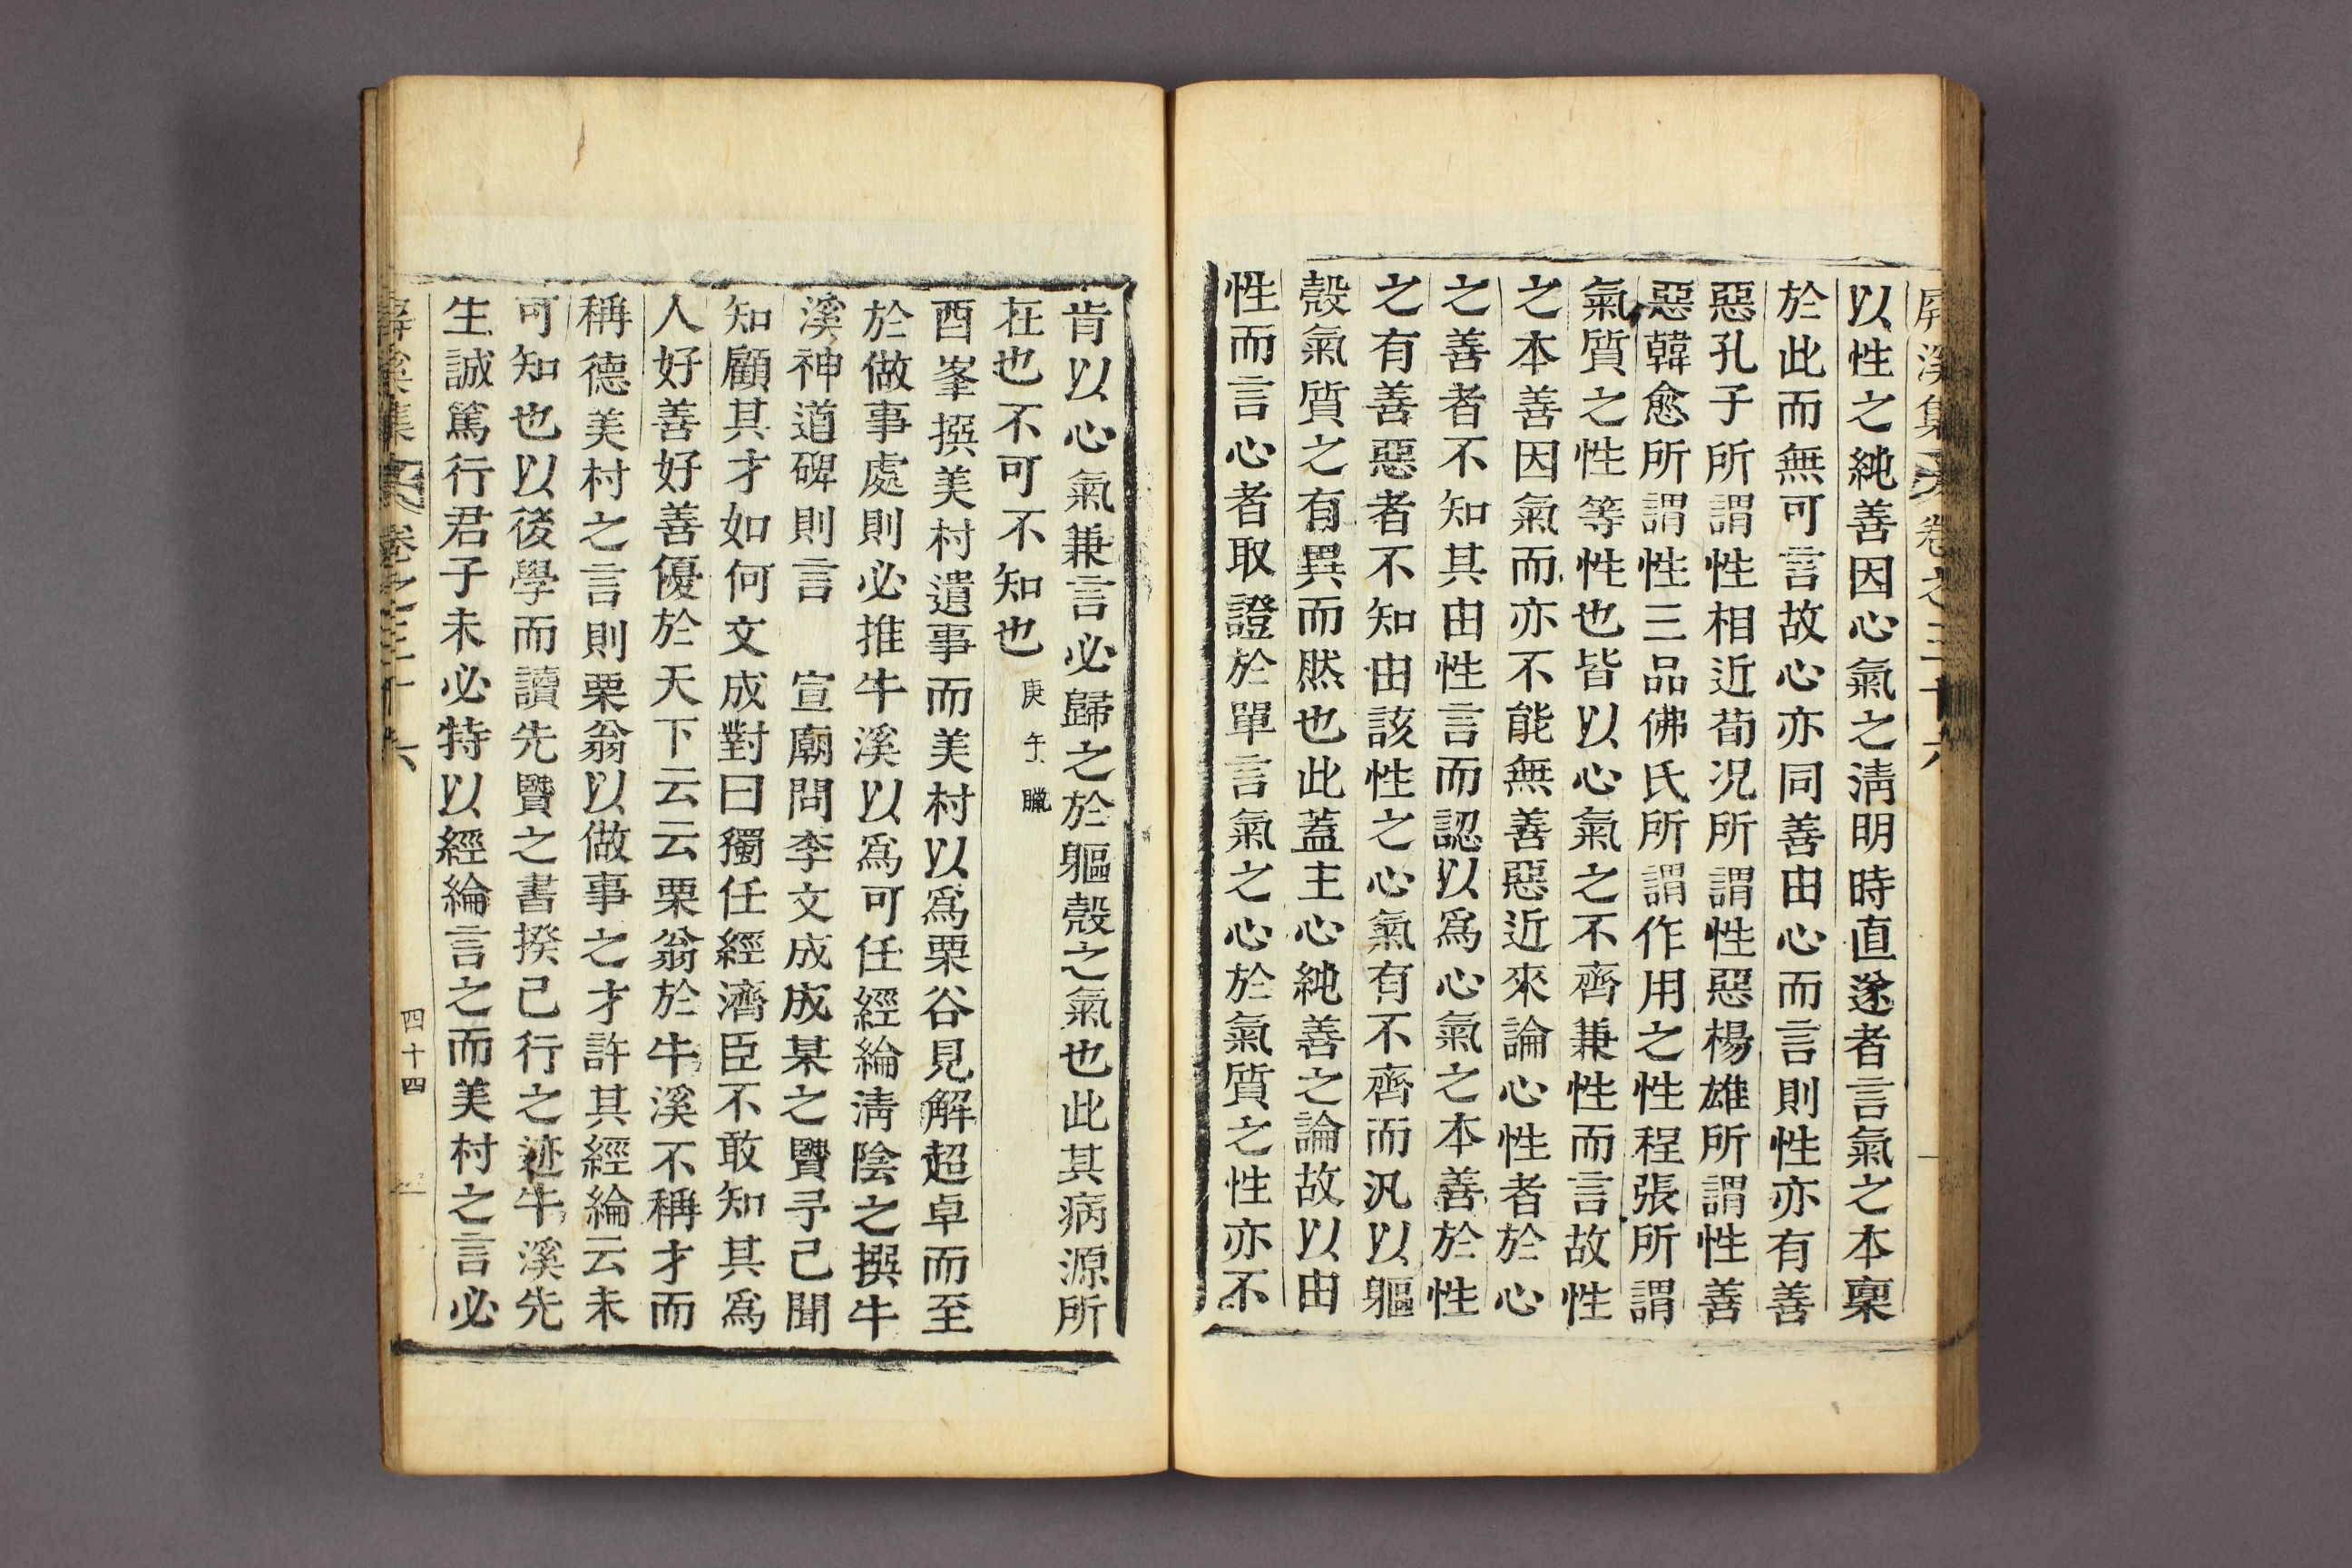 屛溪集卷之三十六
以性之純善因心氣之淸明時直遂者言氣之本稟
於此而無可言故心亦同善由心而言則性亦有善
惡孔子所謂性相近荀况所謂性惡楊雄所謂性善
惡韓愈所謂性三品佛氏所謂作用之性程張所謂
氣質之性等性也皆以心氣之不齊兼性而言故性
之本善因氣而亦不能無善惡近來論心性者於心
之善者不知其由性言而認以爲心氣之本善於性
之有善惡者不知由該性之心氣有不齊而汎以軀
殼氣質之有異而然也此蓋主心純善之論故以由
性而言心者取證於單言氣之心於氣質之性亦不
肯以心氣兼言必歸之於軀殼之氣也此其病源所
在也不可不知也 庚午臘
酉峯撰美村遺事而美村以爲栗谷見解超卓而至
於做事處則必推牛溪以爲可任經綸淸陰之撰牛
溪神道碑則言 宣廟問李文成成某之賢予已聞
知顧其才如何文成對曰獨任經濟臣不敢知其爲
人好善好善優於天下云云栗翁於牛溪不稱才而
稱德美村之言則栗翁以做事之才許其經綸云未
可知也以後學而讀先賢之書揆己行之迹牛溪先
生誠篤行君子未必特以經綸言之而美村之言必
屛溪集 卷之三十六
四十四